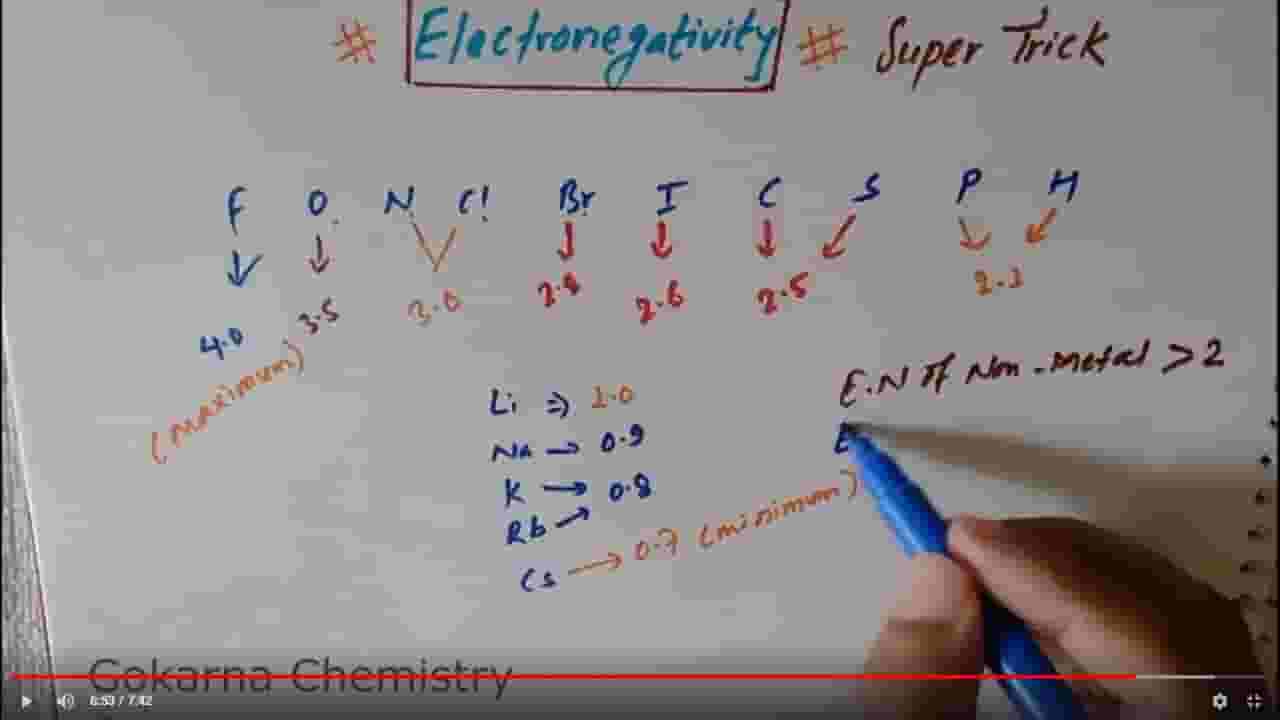 # Electronegativity # Super Trick
F O N Cl Br I C S P H
4.0 3.5 3.0 2.8 2.6 2.5 2.1
(maximum)
E.N of Non-metal > 2
Li ⇒ 1.0
Na → 0.9
E
K → 0.8
Rb →
Cs → 0.7 (minimum)
Gokarna Chemistry
6:53 / 7:42